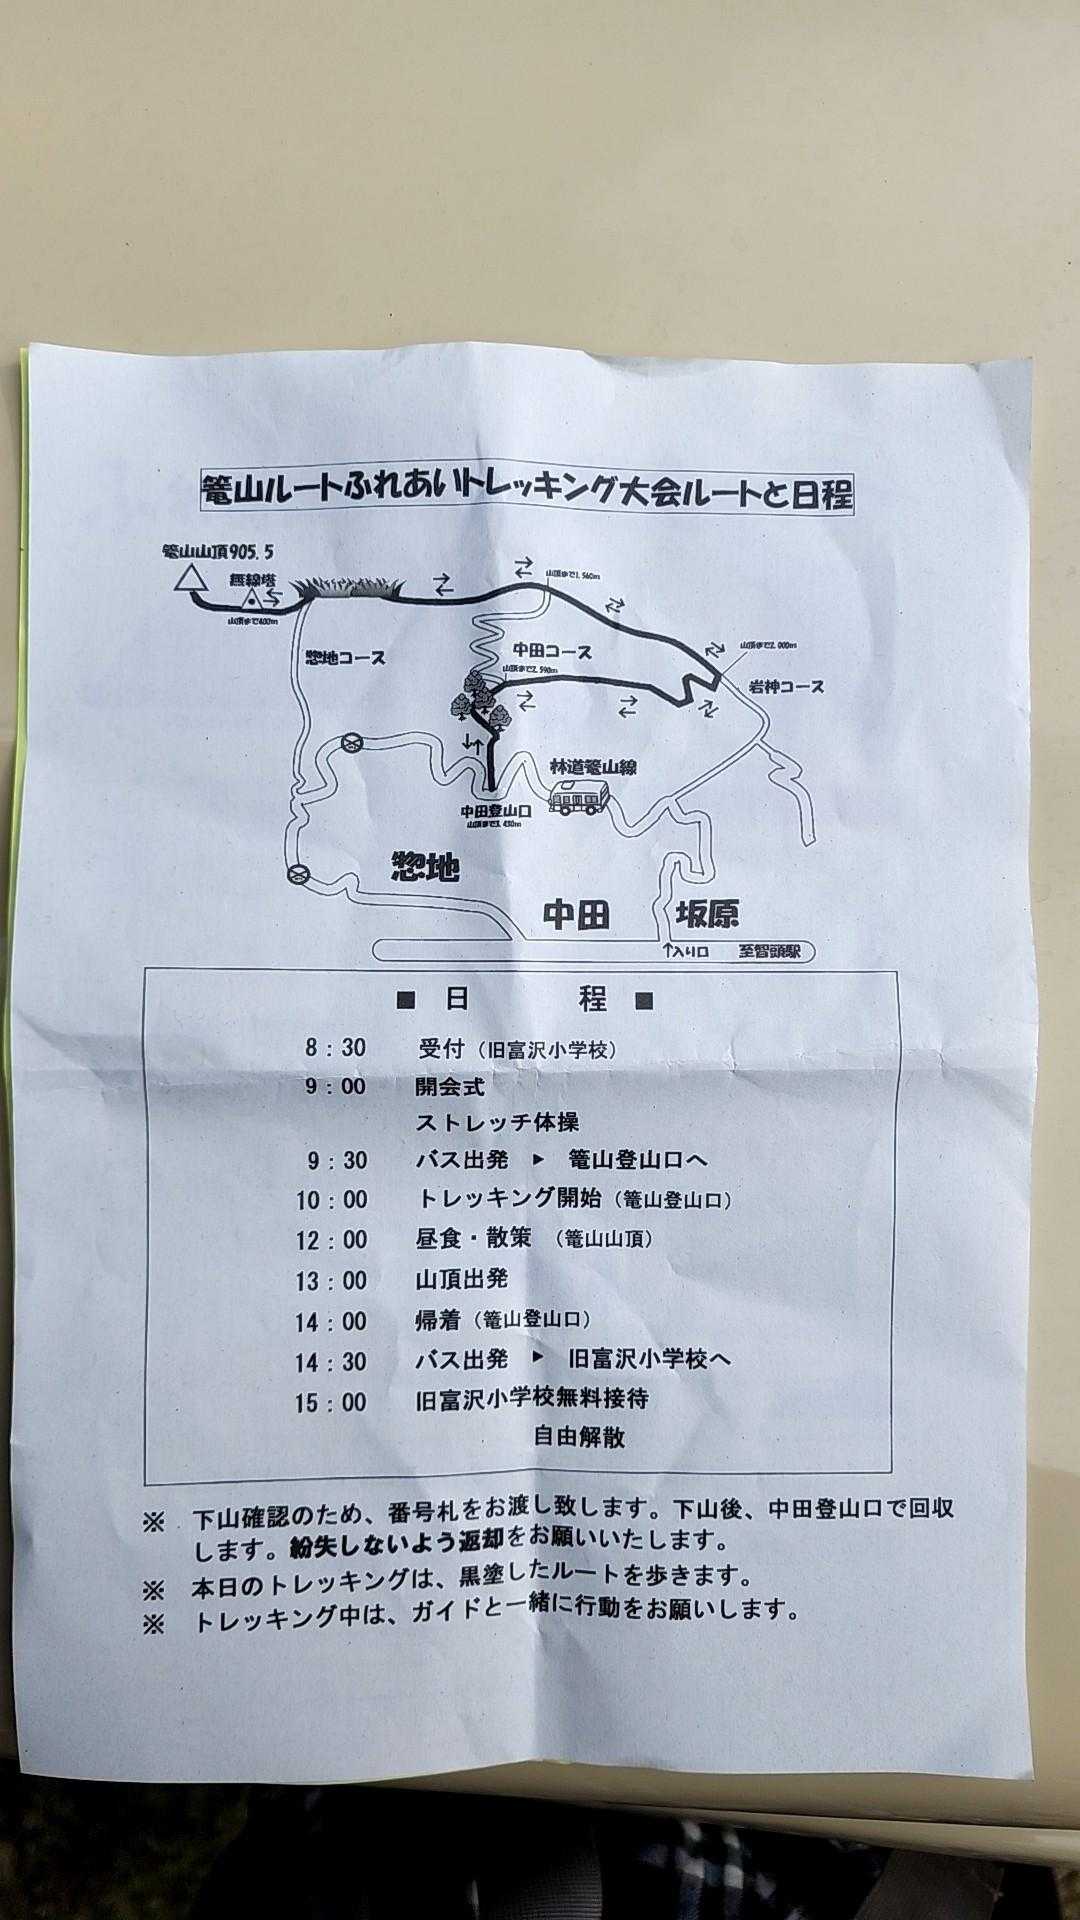 篭山ルートふれあいトレッキング大会ルートと日程
篭山山頂905.5
無線塔
山頂まで400m
山頂まで1,560m
惣地コース
中田コース
山頂まで2,000m
山頂まで2,590m
岩神コース
林道篭山線
中田登山口
山頂まで3,430m
惣地
中田
坂原
↑入り口
至智頭駅
■ 日 程 ■
8:30 受付(旧富沢小学校)
9:00 開会式
ストレッチ体操
9:30 バス出発 ▶ 篭山登山口へ
10:00 トレッキング開始(篭山登山口)
12:00 昼食・散策 (篭山山頂)
13:00 山頂出発
14:00 帰着(篭山登山口)
14:30 バス出発 ▶ 旧富沢小学校へ
15:00 旧富沢小学校無料接待
自由解散
※ 下山確認のため、番号札をお渡し致します。下山後、中田登山口で回収
します。紛失しないよう返却をお願いいたします。
※ 本日のトレッキングは、黒塗したルートを歩きます。
※ トレッキング中は、ガイドと一緒に行動をお願いします。